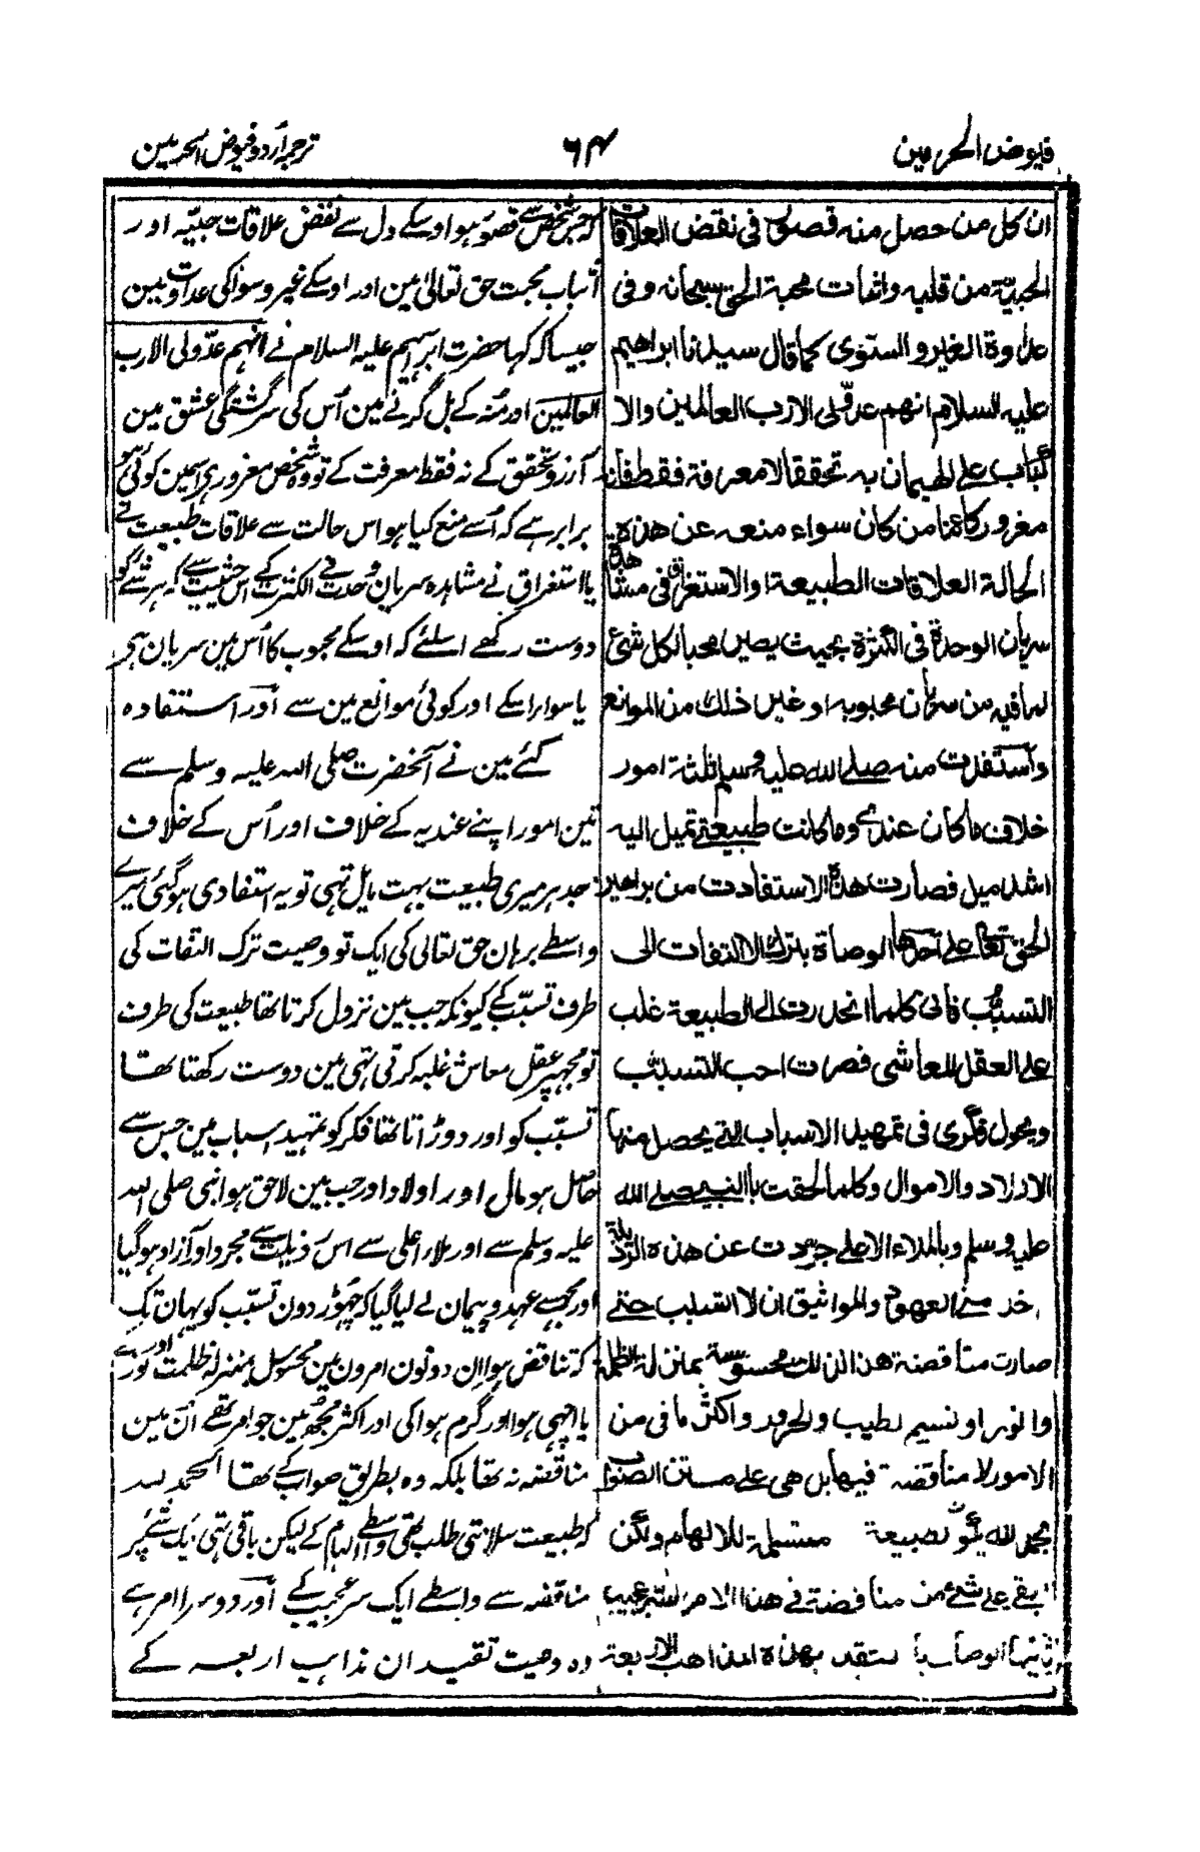 فیوض الحرمین
۶۴
ترجمہ اردو فیوض الحرمین
ان کل من حصل منہ قصور فی نقض العلاقات
الحبیۃ من قلبہ واثبات محبۃ الحق سبحانہ وفی
عداوۃ الغیر والسوی کما قال سیدنا ابراہیم
علیہ السلام انھم عدو لی الا رب العالمین والا
کباب علی الھیمان بہ تحققا لا معرفۃ فقط فانہ
مغرور کائنا من کان سواء منعہ عن ھذہ
الحالۃ العلاقات الطبیعۃ او الاستغراق فی مشاھدۃ
سریان الوحدۃ فی الکثرۃ بحیث یصیر محبا لکل شئ
لما فیہ من سریان محبوبہ او غیر ذلک من الموانع
واستفدت منہ صلی اللہ علیہ وسلم ثلثۃ امور
خلاف ما کان عندی وما کانت طبیعتی تمیل الیہ
اشد میل فصارت ھذہ الاستفادت من براھین
الحق تعالی علی احدھا الوصاۃ بترک الالتفات الی
التسبب فانی کلما انحدرت الی الطبیعۃ غلب
علی العقل المعاشی فصرت احب التسبب
ویحول فکری فی تمھید الاسباب التی یحصل منھا
الاولاد والاموال وکلما لحقت بالنبی صلی اللہ
علیہ وسلم وبالملاء الاعلی جردت عن ھذہ الرذیلۃ
اخذ منی العھود والمواثیق ان لا التسبب حتی
صارت مناقضۃ ھذا لذلک محسوسۃ بمنزلۃ الظلمۃ
والنور او نسیم لطیب والحرور واکثر ما فی من
الامور لا مناقضۃ فیھا بل ھی علی سنن الصواب
بحمد اللہ لطبیعۃ مستسلمۃ للالھام ولکن
ابقی علی شئ من مناقضۃ فی ھذا الامر لسر عجیب
ثانیھا الوصاۃ بالتقید بھذہ المذاھب الاربعۃ
کہ جس شخص سے قصور ہو اوسکے دل سے نقض علاقات حبیّہ اور
اثبات محبت حق تعالیٰ مین اور اوسکے غیر و سوا کی عداوت مین
جیسا کہ کہا حضرت ابراہیم علیہ السلام نے انہم عدو لی الا رب
العالمین اور منہ کے بل گرنے مین اُس کی سرگشتگی عشق مین
آرزو تحقق کے نہ فقط معرفت کے تو وہ شخص مغرور ہی اسمین کوئی ہو
برابر ہے کہ اُسے منع کیا ہو اس حالت سے علاقات طبیعت نے
یا استغراق نے مشاہدہ سریان وحدت فی الکثرت کے اس حیثیت سے کہ ہر شے کو
دوست رکھے اسلئے کہ اوسکے محبوب کا اُس مین سریان ہی
یا سوا اسکے اور کوئی موانع مین سے اور استفادہ
کئے مین نے آنحضرت صلی اللہ علیہ وسلم سے
تین امور اپنے عندیہ کے خلاف اور اُس کے خلاف
جدہر میری طبیعت بہت مایل تہی تو یہ استفادی ہوگئی میرے
واسطے برہان حق تعالی کی ایک تو وصیت ترک التفات کی
طرف تسبّب کے کیونکہ جب مین نزول کرتا تھا طبیعت کی طرف
تو مجہپر عقل معاش غلبہ کرتی تہی مین دوست رکھتا تھا
تسبّب کو اور دوڑاتا تھا فکر کو تمہید اسباب مین جس سے
حاصل ہو مال اور اولاد اور جب مین لاحق ہوا نبی صلی اللہ
علیہ وسلم سے اور ملاء اعلی سے اس رذیلت سے مجرد اور آزاد ہوگیا
اور مجسے عہد و پیمان لے لیا گیا کہ چھوڑ دون تسبّب کو یہان تک
کہ تناقض ہوا ان دونون امرون مین محسوس بمنزلہ ظلمت اور نور کے
یا اچھی ہوا اور گرم ہوا کی اور اکثر مجھ مین جو امر تھے اُن مین
مناقضہ نہ تھا بلکہ وہ بطریق صواب کے تھا الحمد للہ
کہ طبیعت سلامتی طلب تھی واسطے الہام کے لیکن باقی تہی ایک شے پر
مناقضہ سے واسطے ایک سر عجیب کے اور دوسرا امر ہے
وہ وصیت تقید ان مذاہب اربعہ کے